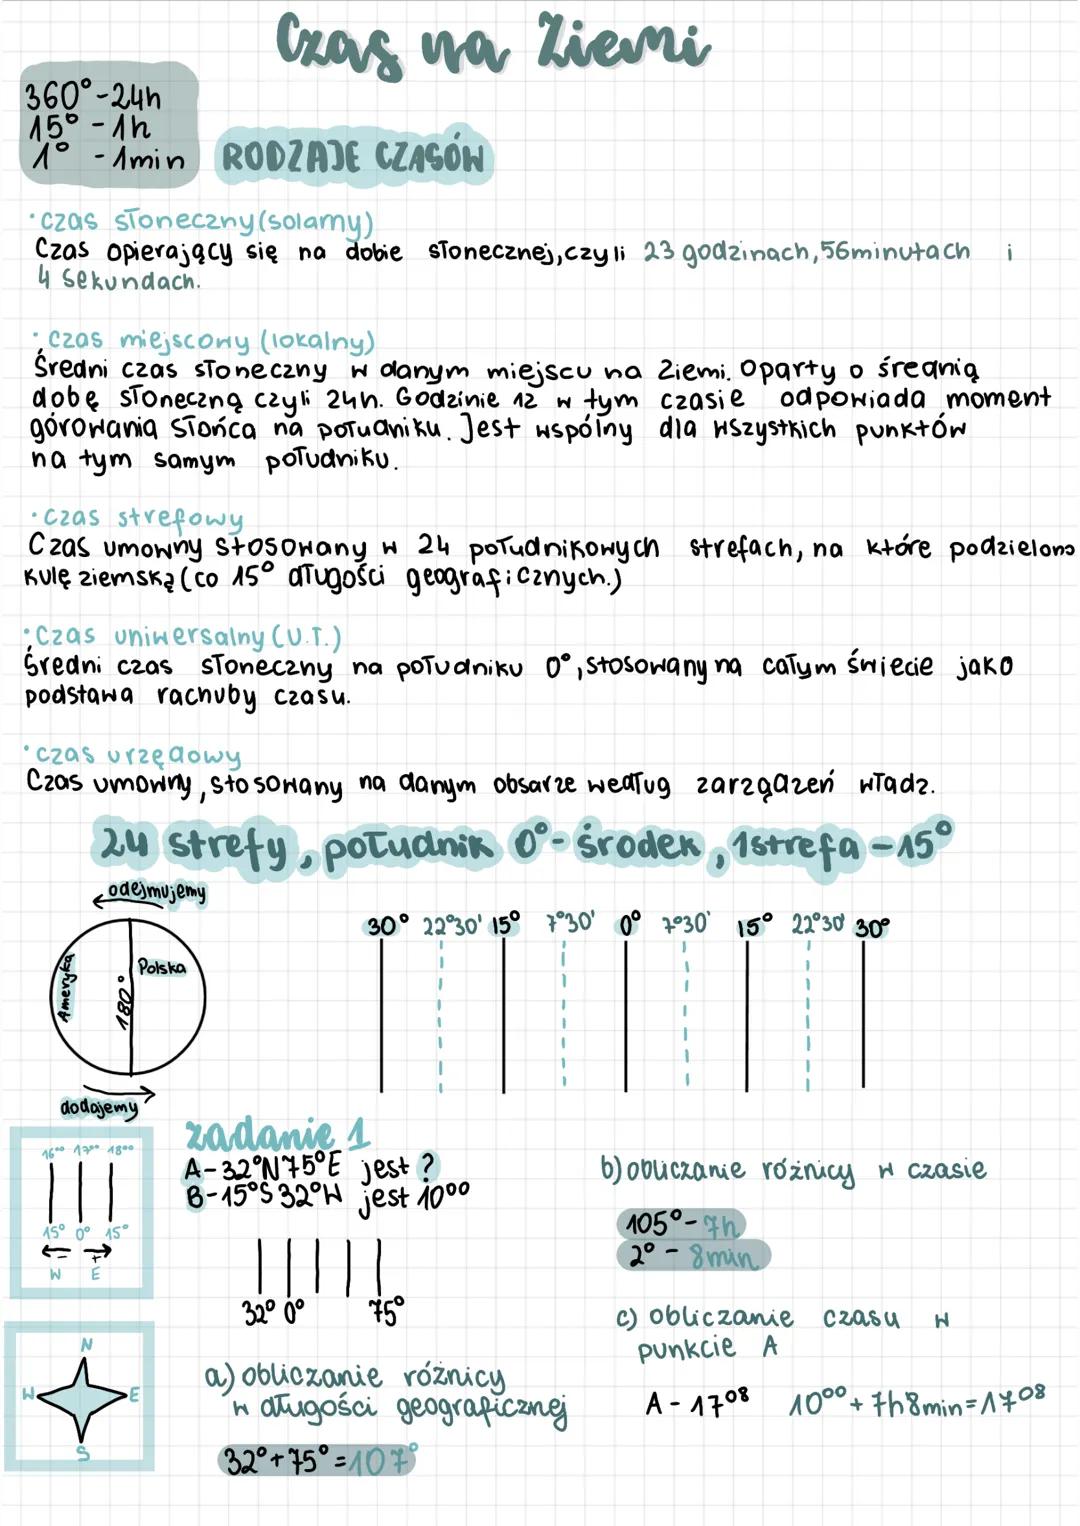 Czas na Ziemi
360° - 24h
15° - 1h
1° - 1min
RODZAJE CZASÓW
• czas słoneczny (solarny)
Czas opierający się na dobie słonecznej, czyli 23 godzinach, 56 minutach i
4 sekundach.
• czas miejscowy (lokalny)
Średni czas słoneczny w danym miejscu na Ziemi. Oparty o średnią
dobę słoneczną czyli 24h. Godzinie 12 w tym czasie odpowiada moment
górowania Słońca na południku. Jest wspólny dla wszystkich punktów
na tym samym południku.
• czas strefowy
Czas umowny stosowany w 24 południkowych strefach, na które podzielono
kulę ziemską (co 15° długości geograficznych.)
• Czas uniwersalny (U.T.)
Średni czas słoneczny na południku 0°, stosowany na całym świecie jako
podstawa rachuby czasu.
• czas urzędowy
Czas umowny, stosowany na danym obsarze według zarządzeń władz.
24 strefy, południk 0° - środek, 1strefa - 15°
odejmujemy
Ameryka
180°
Polska
dodajemy
30° 22°30' 15° 7°30' 0° 7°30' 15° 22°30' 30°
16⁰⁰ 17⁰⁰ 18⁰⁰
15° 0° 15°
- +
W E
N
W E
S
zadanie 1
A - 32°N 75°E jest ?
B - 15°S 32°W jest 10⁰⁰
32° 0° 75°
a) obliczanie różnicy
w długości geograficznej
32° + 75° = 107°
b) obliczanie różnicy w czasie
105° - 7h
2° - 8min
c) obliczanie czasu w
punkcie A
A - 17⁰⁸ 10⁰⁰ + 7h8min = 17⁰⁸